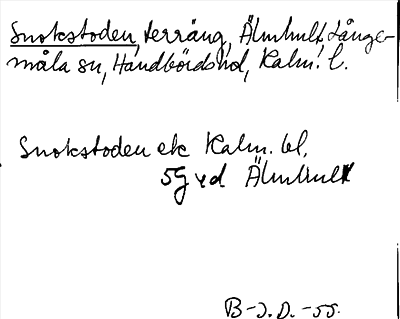 Snokstoden, terräng, Älmhult, Långe-
måla sn, Handbörds hd, Kalm. l.
Snokstoden ek Kalm. bl,
5G vid Älmhult
B-J. D. -55.